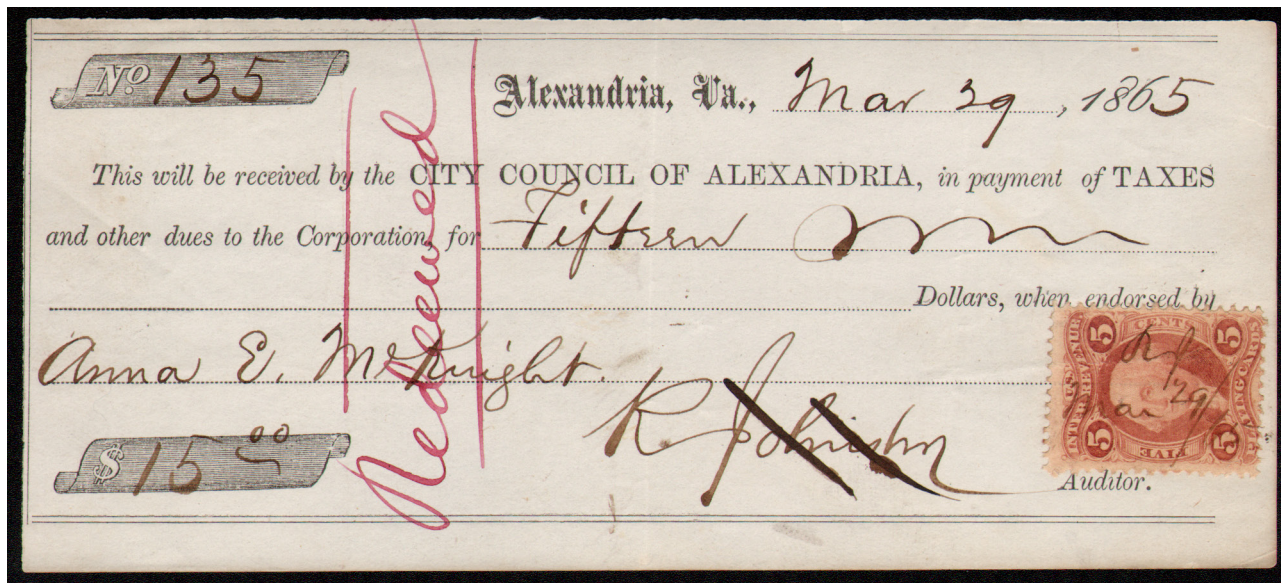 No 135
Alexandria, Va., Mar 29, 1865
This will be received by the CITY COUNCIL OF ALEXANDRIA, in payment of TAXES
and other dues to the Corporation, for Fifteen
Dollars, when endorsed by
Anna E. McKnight.
R Johnston
$ 15 00
Auditor.
Redeemed
5 CENTS 5
U.S. INTER. REVENUE
PLAYING CARDS
RJ
Mar 29/
5 FIVE 5